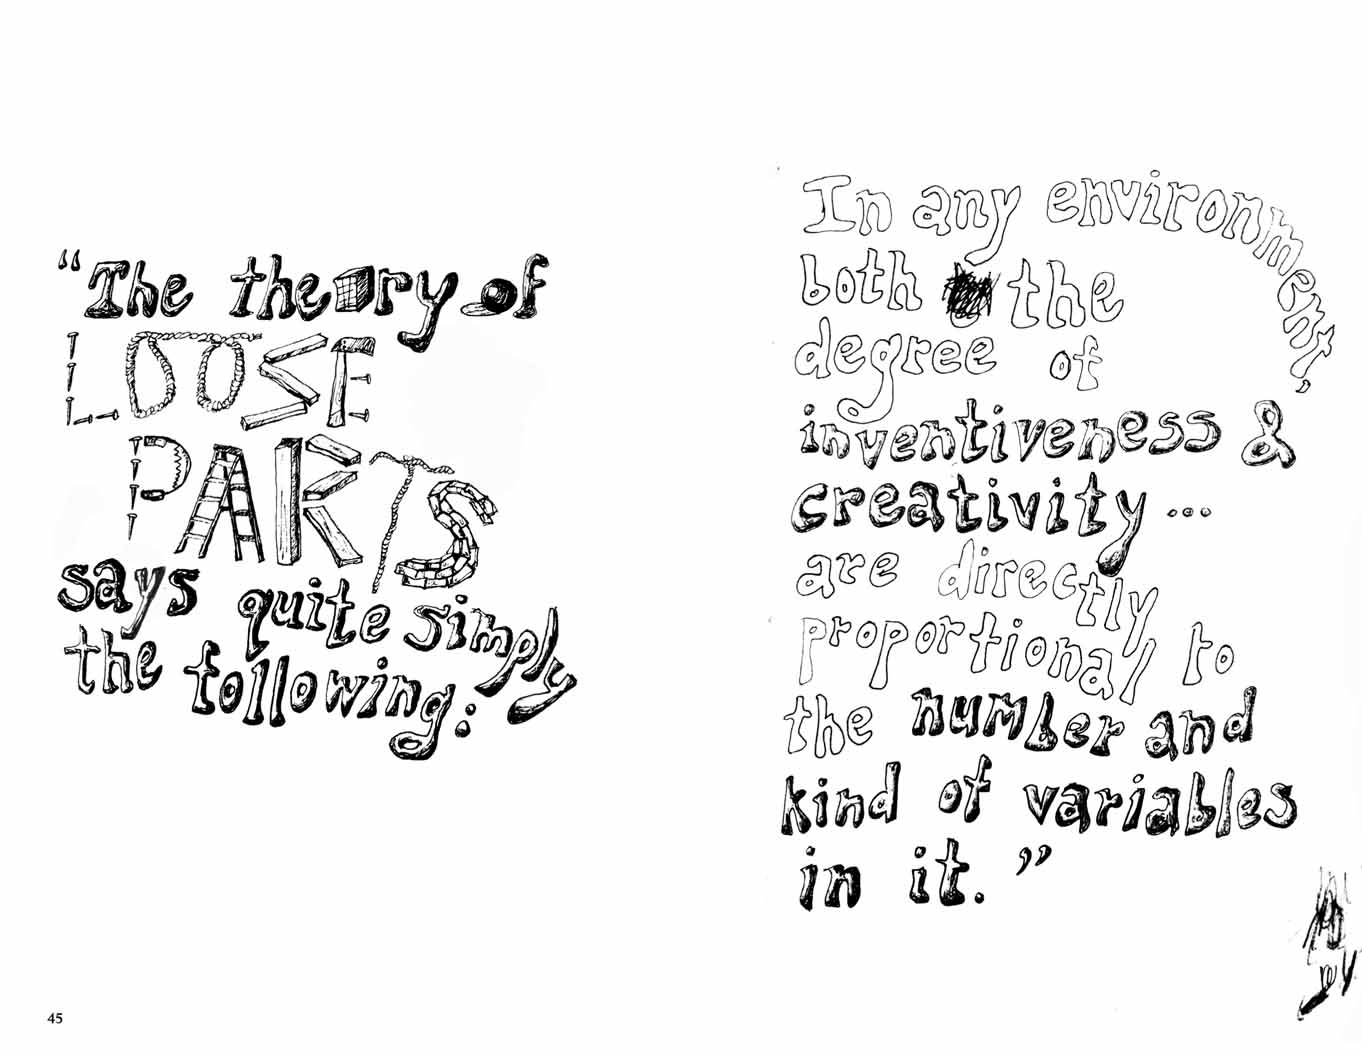 “The theory of
LOOSE
PARTS
says quite simply
the following:
In any environment,
both the
degree of
inventiveness &
creativity ...
are directly
proportional to
the number and
kind of variables
in it.”
45